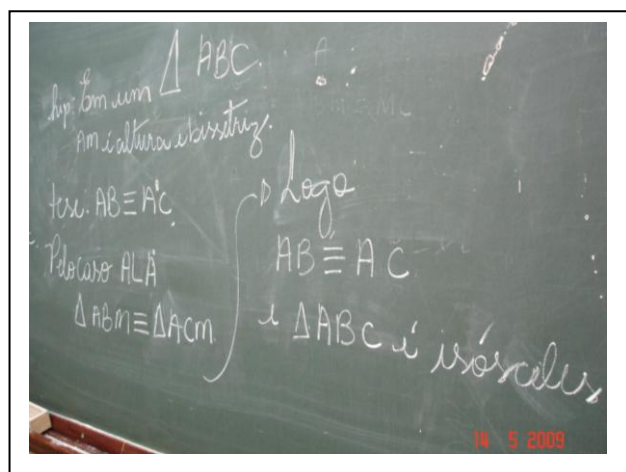 hip: Em um Δ ABC.
AM é altura e bissetriz.
tese: AB ≡ AC
Pelo caso ALA
Δ ABM ≡ Δ ACM
Logo
AB ≡ AC
e Δ ABC é isósceles
14 5 2009